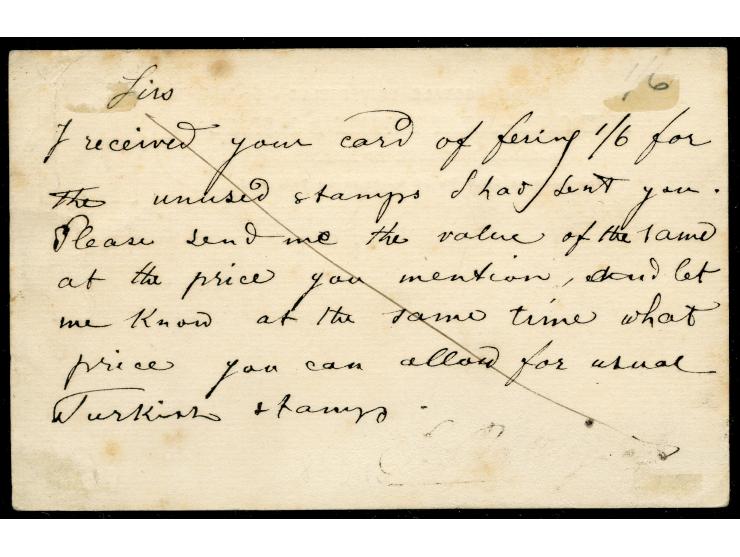 Sirs
1/6
I received your card of fering 1/6 for
the unused stamps I had sent you.
Please send me the value of the same
at the price you mention, and let
me know at the same time what
price you can allow for usual
Turkish stamps.